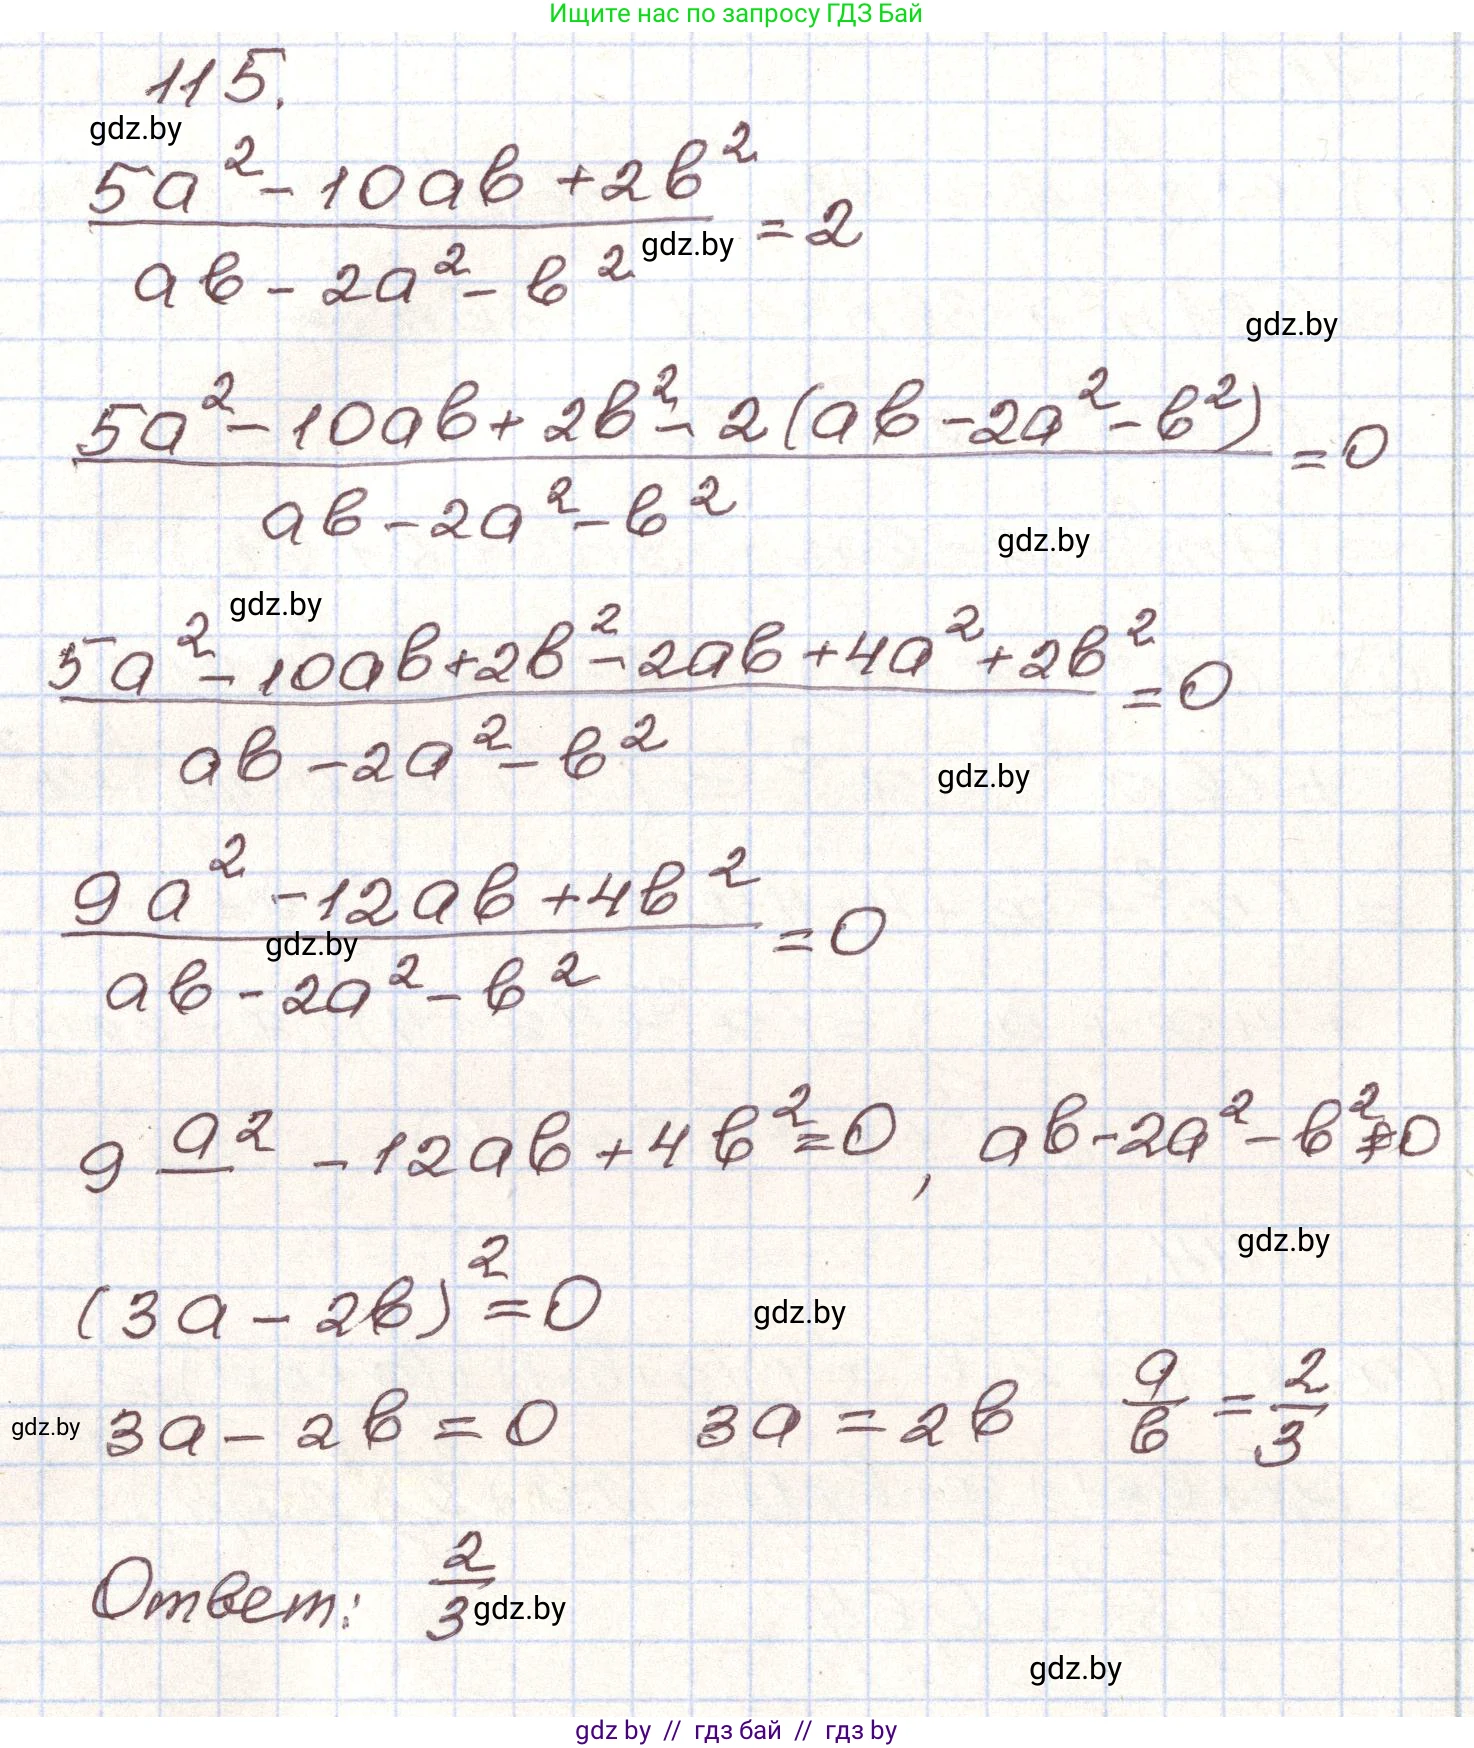 Ищите нас по запросу ГДЗ Бай
115.
gdz.by
(5a² - 10ab + 2b²)/(ab - 2a² - b²) = 2
gdz.by
gdz.by
(5a² - 10ab + 2b² - 2(ab - 2a² - b²))/(ab - 2a² - b²) = 0
gdz.by
gdz.by
(5a² - 10ab + 2b² - 2ab + 4a² + 2b²)/(ab - 2a² - b²) = 0
gdz.by
(9a² - 12ab + 4b²)/(ab - 2a² - b²) = 0
gdz.by
9a² - 12ab + 4b² = 0, ab - 2a² - b² ≠ 0
gdz.by
(3a - 2b)² = 0
gdz.by
gdz.by
3a - 2b = 0 3a = 2b a/b = 2/3
Ответ: 2/3
gdz.by
gdz.by
gdz by // гдз бай // гдз by